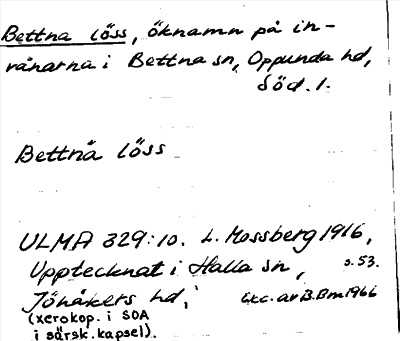 Bettna löss, öknamn på in-
vånarna i Bettna sn, Oppunda hd,
Söd. l.
Bettnå löss
ULMA 329:10. L. Mossberg 1916,
Upptecknat i Halla sn, s. 53.
Jönåkers hd, Exc. av B.Bm 1966
(xerokop. i SOA
i särsk. kapsel).